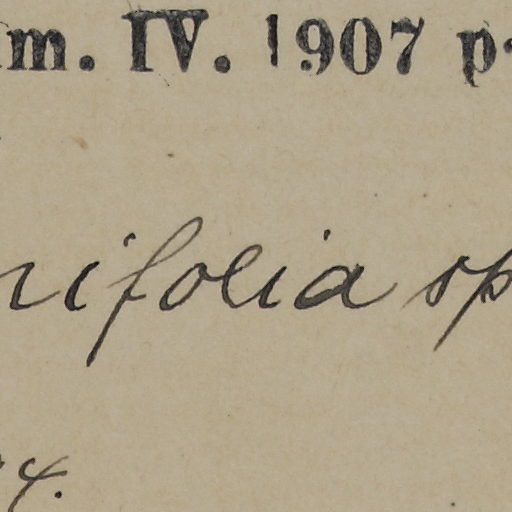 m. IV. 1907 p.
nifolia sp
4.